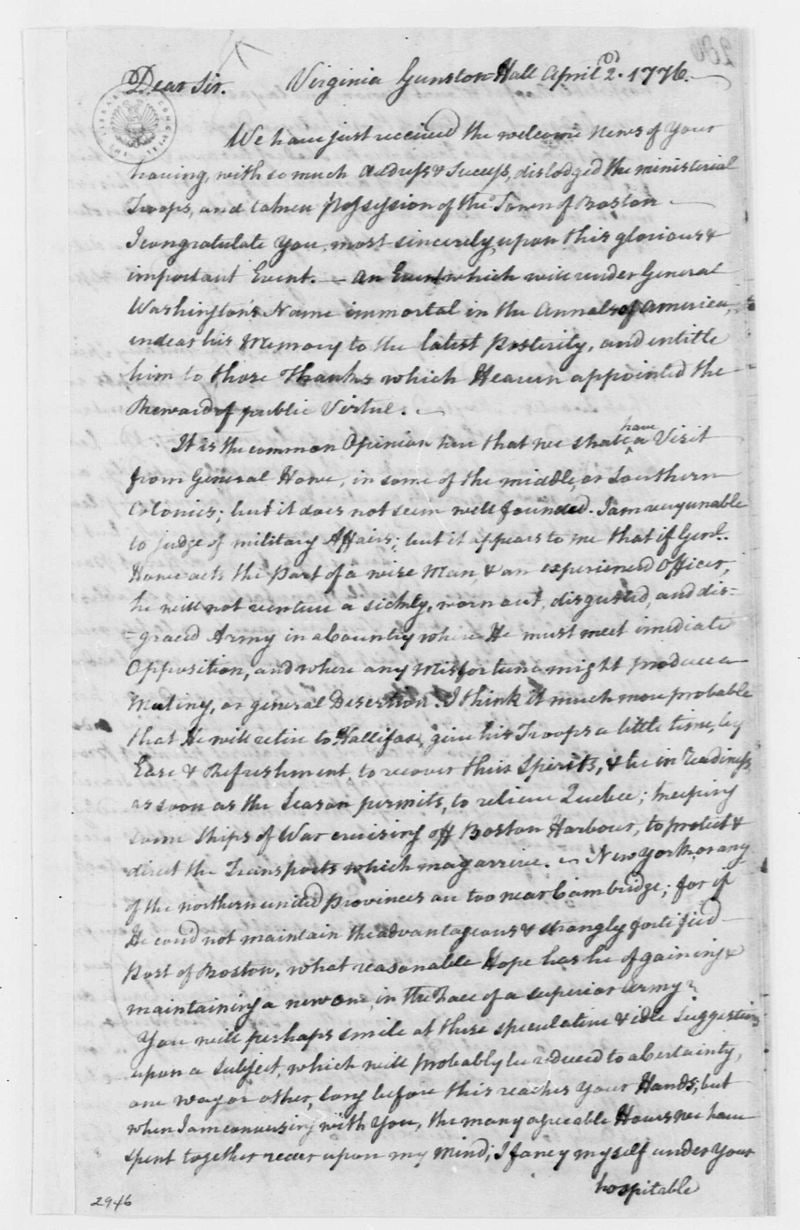 Dear Sir. Virginia Gunston-Hall April 2d. 1776.
We have just received the welcome News of Your
having, with so much Address & Success, dislodged the ministerial
Troops, and taken Possession of the Town of Boston.
I congratulate You most sincerely upon this glorious &
important Event. — an Event which will render General
Washington's Name immortal in the Annals of America,
endear his Memory to the latest Posterity, and entitle
him to those Thanks which Heaven appointed the
Reward of public Virtue. —
It is the common Opinion here that we shall have a Visit
from General Howe, in some of the middle, or Southern
Colonies; but it does not seem well founded. I am very unable
to judge of military Affairs; but it appears to me that if Genl.
Howe acts the Part of a wise Man & an experienced Officer,
he will not venture a sickly, worn out, disgusted, and dis-
-graced Army in a Country where He must meet imediate
Opposition, and where any Misfortune might produce a
Mutiny, or general Desertion. I think it much more probable
that He will retire to Hallifax, give his Troops a little time, by
Ease & Refreshment, to recover their Spirits, & be in Readiness,
as soon as the Season permits, to relieve Quebec; keeping
some Ships of War cruising off Boston Harbour, to protect &
direct the Transports which may arrive. — New York, or any
of the northern united Provinces are too near Cambridge; for if
He cou'd not maintain the advantageous & strongly fortified
Post of Boston, what reasonable Hope has he of gaining &
maintaining a new one, in the Face of a superior Army?
You will perhaps smile at these speculative & idle Suggestions
upon a Subject, which will probably be reduced to a Certainty,
one way or other, long before this reaches Your Hands; but
when I am conversing with You, the many agreeable Hours we have
spent together recur upon my Mind; I fancy myself under Your
hospitable
2946